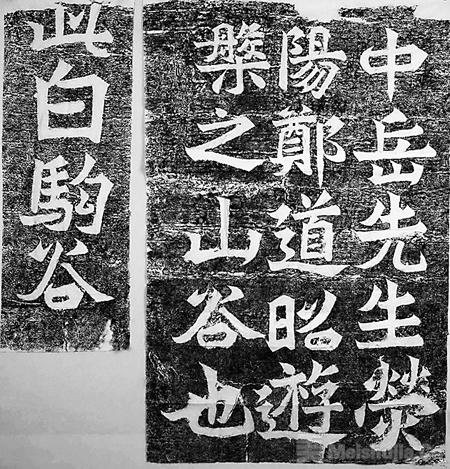 中岳先生熒
陽鄭道昭遊
槃之山谷也
此白駒谷